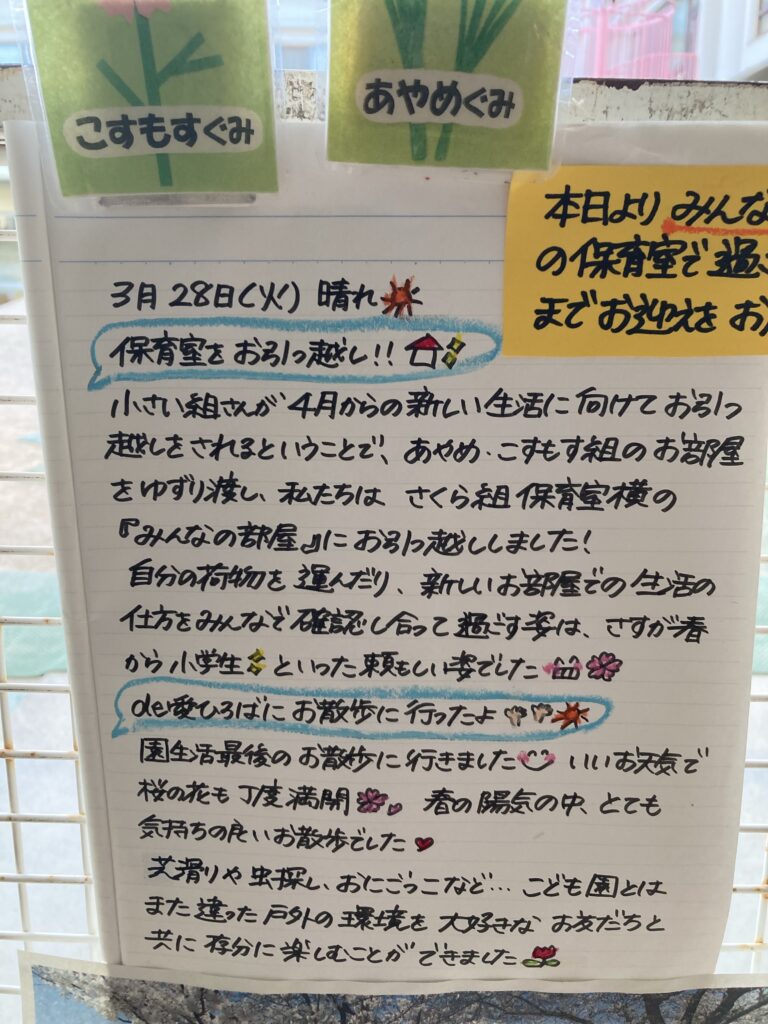 こすもすぐみ
あやめぐみ
本日より みんな
の保育室で過ご
までお迎えを お
3月 28日(火) 晴れ
保育室を お引っ越し!!
小さい組さんが 4月からの新しい生活に向けて お引っ
越しをされるということで、あやめ・こすもす組のお部屋
をゆずり渡し、私たちは さくら組保育室横の
『みんなの部屋』に お引っ越ししました!
自分の荷物を運んだり、新しいお部屋での生活の
仕方をみんなで確認し合って過ごす姿は、さすが春
から小学生 といった頼もしい姿でした
de愛ひろばに お散歩に行ったよ
園生活最後のお散歩に行きました いいお天気で
桜の花も丁度満開 春の陽気の中、とても
気持ちの良いお散歩でした
芝滑りや虫探し、おにごっこなど… こども園とは
また違った戸外の環境を大好きな お友だちと
共に存分に楽しむことができました